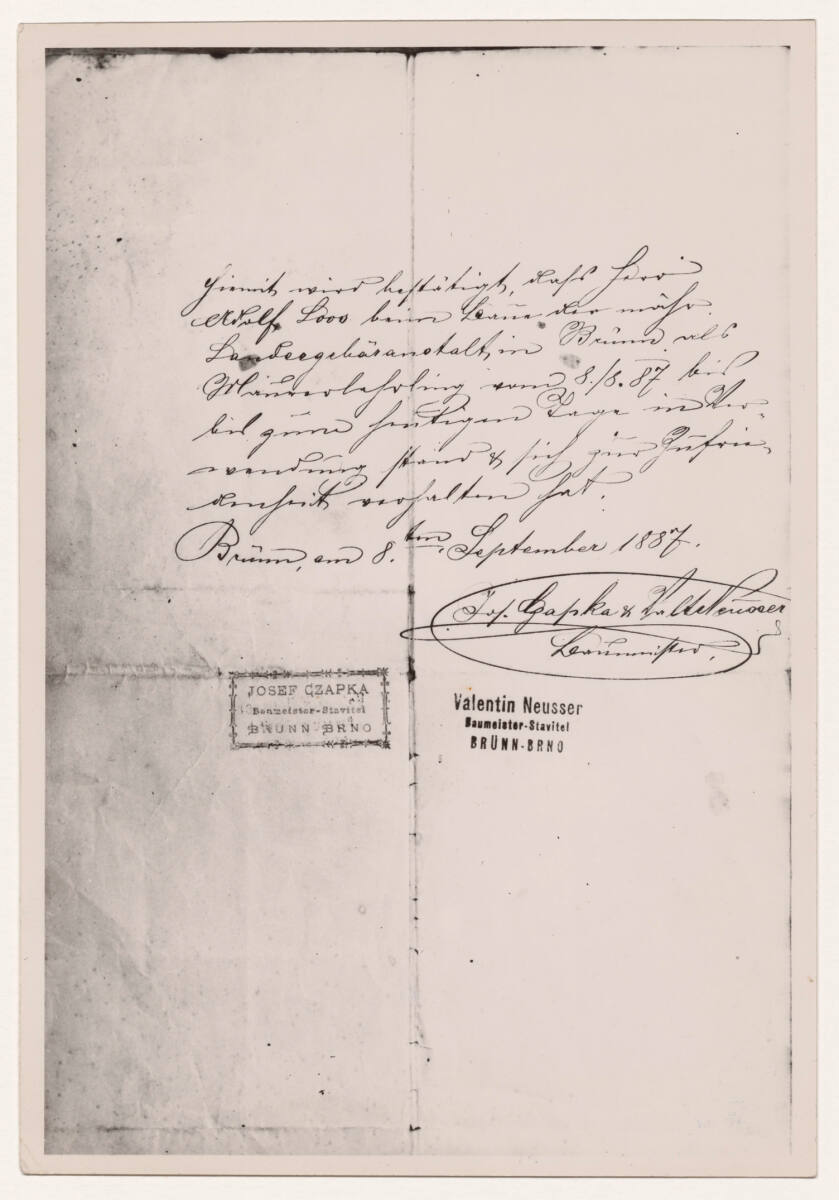 Hiemit wird bestätigt, dass Herr
Adolf Loos beim Baue der mähr.
Landesgebäranstalt in Brünn als
Maurerlehrling vom 8./8. 87 bis
bis zum heutigen Tage in Ver-
wendung stand & sich zur Zufrie-
denheit verhalten hat.
Brünn, am 8.ten September 1887.
Jos. Czapka & Val. Neusser
Baumeister.
JOSEF CZAPKA
Baumeister-Stavitel
BRÜNN BRNO
Valentin Neusser
Baumeister-Stavitel
BRÜNN-BRNO